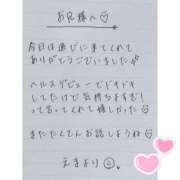 お兄様へ♡
今日は遊びに来てくれて
ありがとうございました
ヘルスデビューでドキドキ
してたけど気持ちよすぎ!
って言ってくれて嬉しかった♡
またたくさんお話しようね♡
えまより